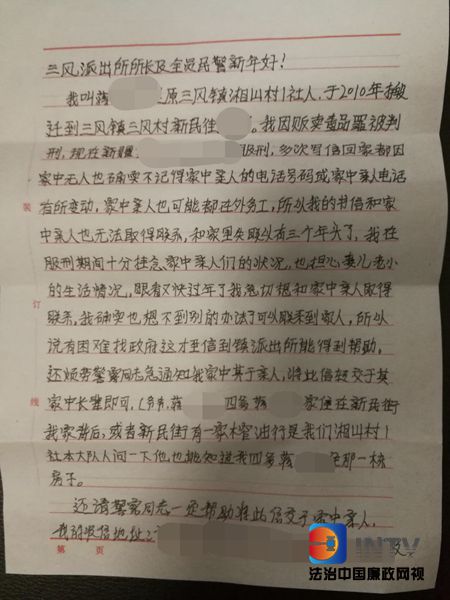 三风派出所所长及全员民警新年好！
我叫蒋 原三风镇湘山村1社人，于2010年搬
迁到三风镇三风村新民住 。我因贩卖毒品罪被判
刑，现在新疆 服刑，多次写信回家都因
家中无人也确实不记得家中亲人的电话号码或家中亲人电话
有所变动，家中亲人也可能都在外务工，所以我的书信和家
中亲人也无法取得联系，和家里失联以有三个年头了，我在
服刑期间十分挂念家中亲人们的状况，也担心妻儿老小
的生活情况，眼看又快过年了我急切想和家中亲人取得
联系，我确实也想不到别的办法了可以联系到家人，所以
说有困难找政府这才写信到镇派出所能得到帮助。
还烦劳警察同志急通知我家中其于亲人，将此信转交于其
家中长辈即可，(爷爷，蒋 四爷蒋 家住在新民街
我家背后，或者新民街有一家榨油行是我们湘山村1
社本大队人问一下他，也能知道我四爷蒋 是那一栋
房子。
还请警察同志一定帮助将此信交于家中亲人，
我的收信地址：
装
订
线
第 页
INTV
法治中国廉政网视